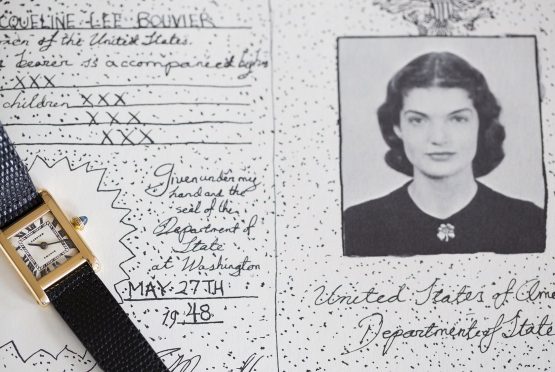 CQUELINE LEE BOUVIER
of the United States.
bearer is accompanied by his
XXX
children XXX
XXX
XXX
Given under my
hand and the
seal of the
Department of
State
at Washington
MAY 27TH
19 48
United States of Ame
Department of State